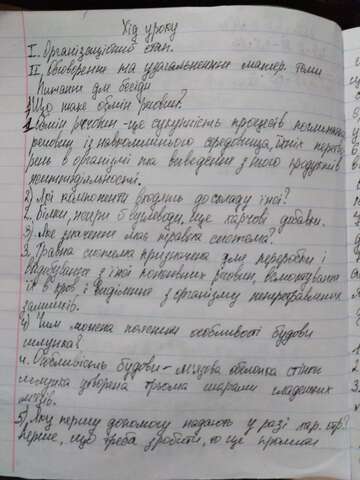 Хід уроку
I. Організаційний етап.
II. Обговорення та узагальнення матер. теми
Питання для бесіди
1) Що таке обмін речовин?
1. Обмін речовин - це сукупність процесів поглинання
речовин із навколишнього середовища, їхніх перетво
рень в організмі та виведення з нього продуктів
життєдіяльності.
2) Які компоненти входять до складу їжі?
2. Білки, жири і вуглеводи, ще харчові добавки.
3) Яке значення має травна система?
3. Травна система призначена для переробки і
з їжі поживних речовин, всмоктування
їх в кров і виділення з організму неперетравлених
залишків.
4) Чим можна пояснити особливості будови
шлунка?
4. Особливість будови - м'язова оболонка стінки
шлунка утворена трьома шарами гладеньких
м'язів.
5) Яку першу допомогу надають у разі хар. отр?
Перше, що треба зробити, то це промити